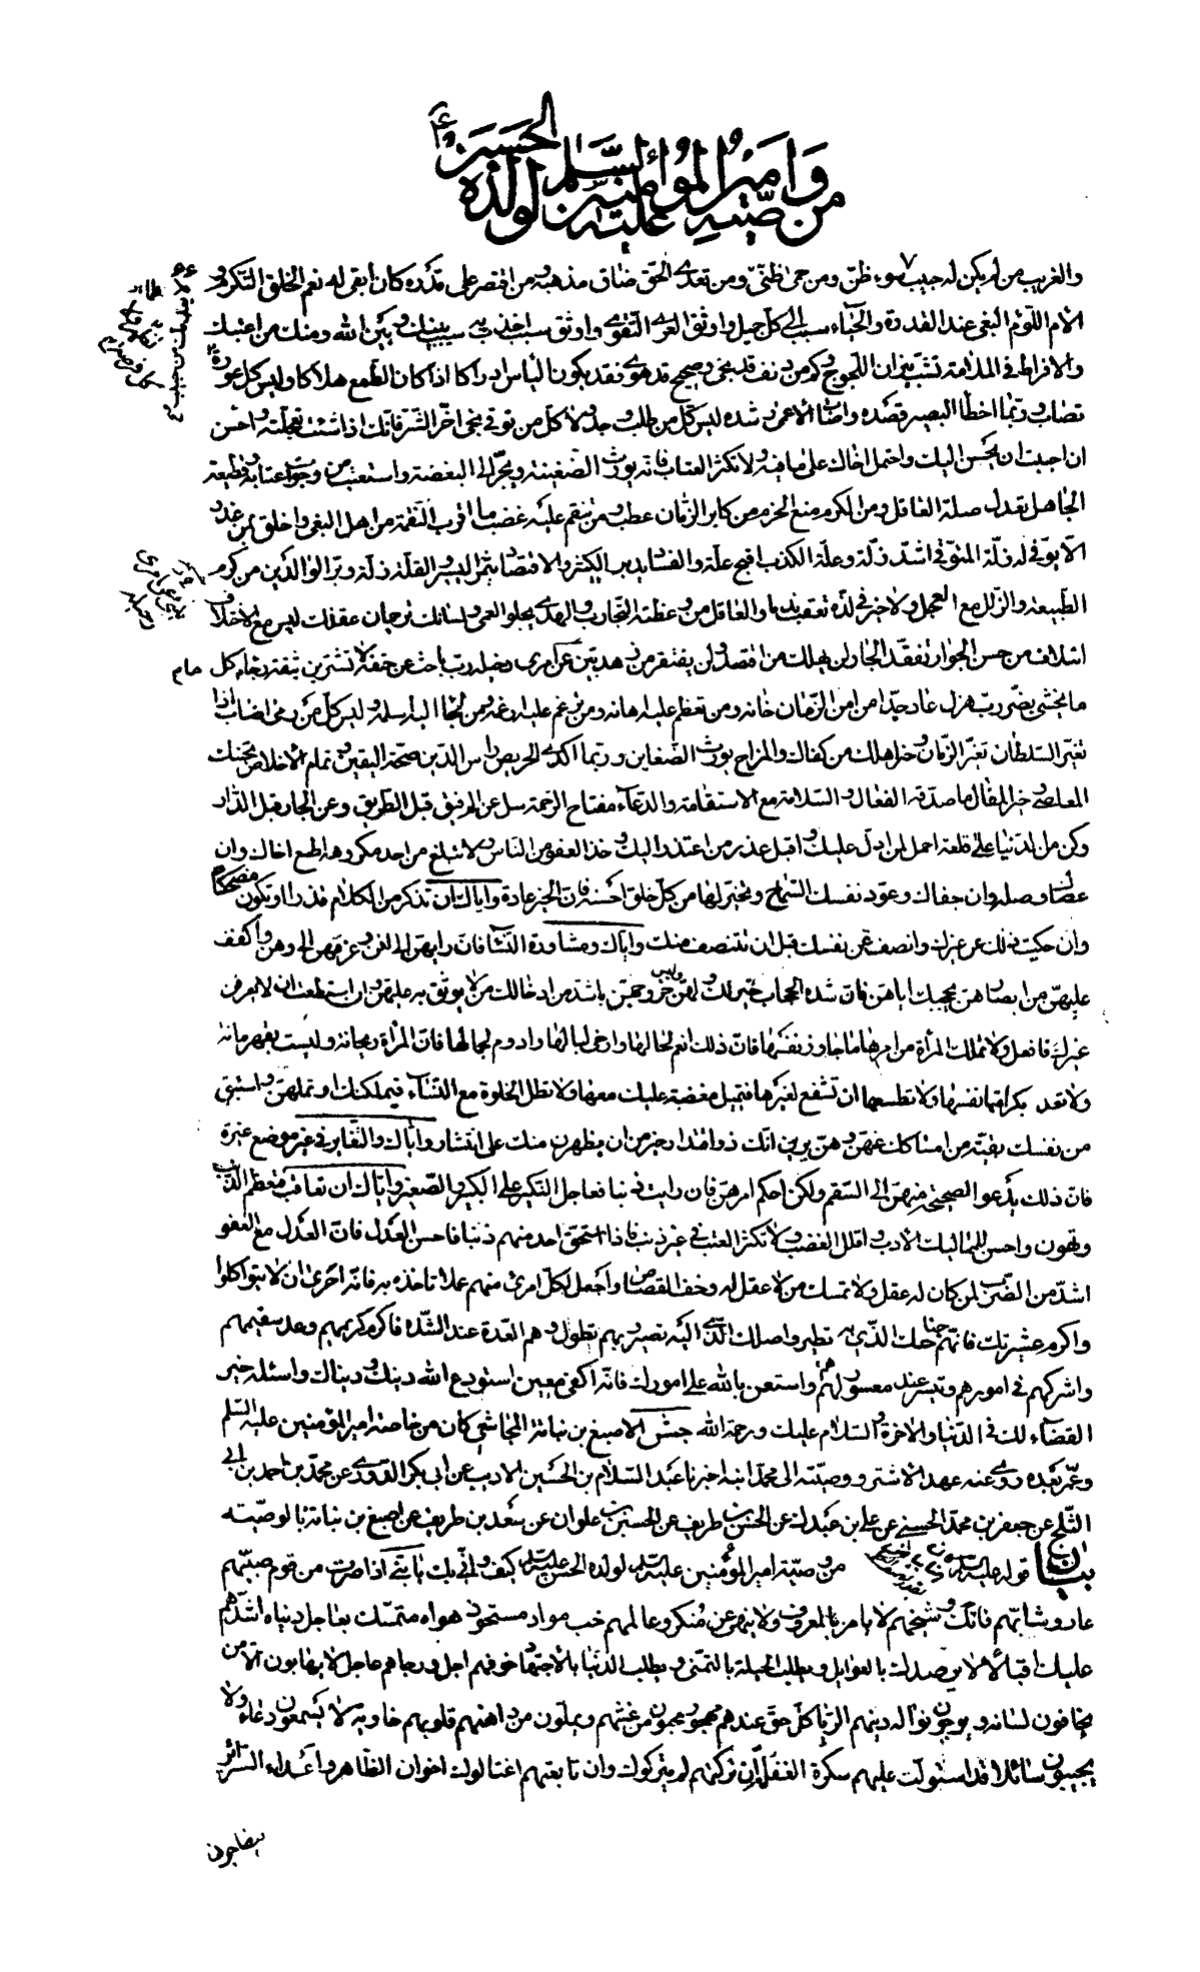 من وصية امير المؤمنين عليه السلم لولده الحسن ع
والغريب من لم يكن له حبيب سوء ظن ومن حمى ظنى ومن تعدى الحق ضاق مذهبه ومن اقتصر على قدره كان أبقى له نعم الخلق التكرم و
الأم اللؤم البغى عند القدرة والحياء سبب الى كل جميل واوثق العرى التقوى واوثق سبب اخذت به سبب بينك وبين الله ومنك من اعتبك
والافراط فى الملامة تشب نيران اللجوج كم من دنف قد نجى وصحيح قد هوى فقد يكون اليأس ادراكا اذا كان الطمع هلاكا وليس كل عورة
تصاب وربما اخطأ البصير قصده واصاب الأعمى رشده ليس كل من طلب وجد ولا كل من توقى نجى اخر الشر فانك اذا شئت تعجلته واحسن
ان احببت ان يحسن اليك واحتمل اخاك على ما فيه ولا تكثر العتاب فانه يورث الضغينة ويجر الى البغضة واستعتب من رجوت اعتابه وقطيعة
الجاهل تعدل صلة العاقل ومن الكرم منع الحزم من كابر الزمان عطب ومن تنقم عليه غضب ما اقرب النقمة من اهل البغى واخلق بمن غدر
الا يوفى له زلة المتوقى اشد زلة وعلة الكذب اقبح علة والفساد يبير الكثير والاقتصاد يثمر اليسير والقلة ذلة وبر الوالدين من كرم
الطبيعة والزلل مع العجل ولا خير فى لذة تعقب ندما والعاقل من وعظته التجارب والهدى يجلو العمى ولسانك ترجمان عقلك ليس مع الاختلاف
ائتلاف من حسن الجوار تفقد الجار لن يهلك من اقتصد ولن يفتقر من زهد يبين عن امرئ دخيله رب باحث عن حتفه لا تشترين بثقة رجاء كل
ما يخشى يضر رب هزل عاد جدا من امن الزمان خانه ومن تعظم عليه اهانه ومن ترغم عليه ارغمه ومن لجأ اليه اسلمه وليس كل من رمى اصاب اذا
تغير السلطان تغير الزمان وخير اهلك من كفاك والمزاح يورث الضغاين وربما اكدى الحريص رأس الدين صحة اليقين وتمام الأخلاص تجنبك
المعاصى وخير المقال ما صدقه الفعال والسلامة مع الاستقامة والدعاء مفتاح الرحمة سل عن الرفيق قبل الطريق وعن الجار قبل الدار
وكن من الدنيا على قلعة احمل لمن ادل عليك واقبل عذر من اعتذر اليك وخذ العفو من الناس ولا تبلغ من احد مكروهه اطع اخاك وان
عصاك وصله وان جفاك وعود نفسك السماح وتخير لها من كل خلق احسنه فان الخير عادة واياك ان تذكر من الكلام قذرا او تكون مضحكا
وان حكيت ذلك عن غيرك وانصف من نفسك قبل ان تنتصف منك واياك ومشاورة النساء فان رايهن الى افن وعزمهن الى وهن واكفف
عليهن من ابصارهن بحجبك اياهن فان شدة الحجاب خير لك ولهن وليس خروجهن باشد من ادخالك من لا يوثق به عليهن وان استطعت ان لا يعرفن
غيرك فافعل ولا تملك المرأة من امرها ما جاوز نفسها فان ذلك انعم لحالها وارخى لبالها وادوم لجمالها فان المرأة ريحانة وليست بقهرمانة
ولا تعد بكرامتها نفسها ولا تطمعها ان تشفع لغيرها فتميل مغضبة عليك معها ولا تطل الخلوة مع النساء فيملكنك او تملهن واستبق
من نفسك بقية من امساكك عنهن وهن يرين انك ذو اقتدار خير من ان يظهرن منك على انتشار واياك والتغاير فى غير موضع غيرة
فان ذلك يدعو الصحيحة منهن الى السقم ولكن احكم امرهن فان رايت ذنبا فعاجل النكير على الكبير والصغير واياك ان تعاقب فتعظم الذنب
وتهون واحسن للمماليك الأدب واقلل الغضب ولا تكثر العتب فى غير ذنب فاذا استحق احد منهم ذنبا فاحسن العدل فان العدل مع العفو
اشد من الضرب لمن كان له عقل ولا تمسك من لا عقل له وخف القصاص واجعل لكل امرئ منهم عملا تاخذه به فانه احرى ان لا يتواكلوا
واكرم عشيرتك فانهم جناحك الذى به تطير واصلك الذى اليه تصير وبهم تصول وهم العدة عند الشدة فاكرم كريمهم وعد سقيمهم
واشركهم فى امورهم وتيسر عند معسور لهم واستعن بالله على امورك فانه اكفى معين استودع الله دينك ودنياك واسئله خير
القضاء لك فى الدنيا والاخرة والسلام عليك ورحمة الله جش الاصبغ بن نباتة المجاشعى كان من خاصة امير المؤمنين عليه السلم
وعمر بعده روى عنه عهد الاشتر ووصيته الى محمد ابنه اخبرنا عبد السلام بن الحسين الاديب عن ابى بكر الدورى عن محمد بن احمد بن ابى
الثلج عن جعفر بن محمد الحسينى عن على بن عبدك عن الحسن بن طريف عن الحسين بن علوان عن سعد بن طريف عن اصبغ بن نباتة بالوصية
بيان قوله عليه السلم من وصية امير المؤمنين عليه السلم لولده الحسن عليه السلم كيف وانى بك يا بنى اذا صرت من قوم صبيهم
عار وشابهم فاتك وشيخهم لا يأمر بالمعروف ولا ينهى عن منكر وعالمهم خب مواد مستحوذ هواه متمسك بعاجل دنياه اشدهم
عليك اقبالا يرصدك بالغوايل ويطلب الحيلة بالتمنى ويطلب الدنيا بالاجتهاد خوفهم اجل ورجاهم عاجل لا يهابون الا من
يخافون لسانه ويرجون نواله دينهم الربا كل حق عندهم مهجور يحبون من غشهم ويملون من داهنهم قلوبهم خاوية لا يسمعون دعاء ولا
يجيبون سائلا قد استولت عليهم سكرة الغفلة ان تركتهم لم يتركوك وان تابعتهم اغتالوك اخوان الظاهر واعداء السرائر
يتصاحبون